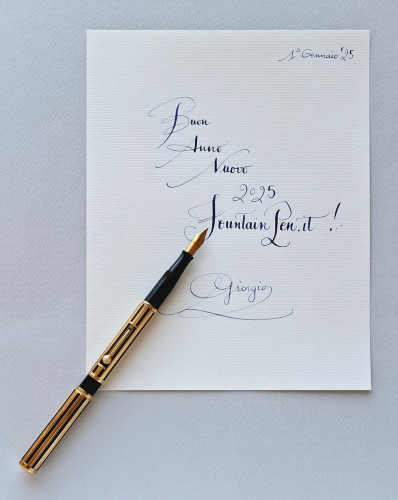 1° Gennaio '25
Buon
Anno
Nuovo
2025
FountainPen.it !
Giorgio